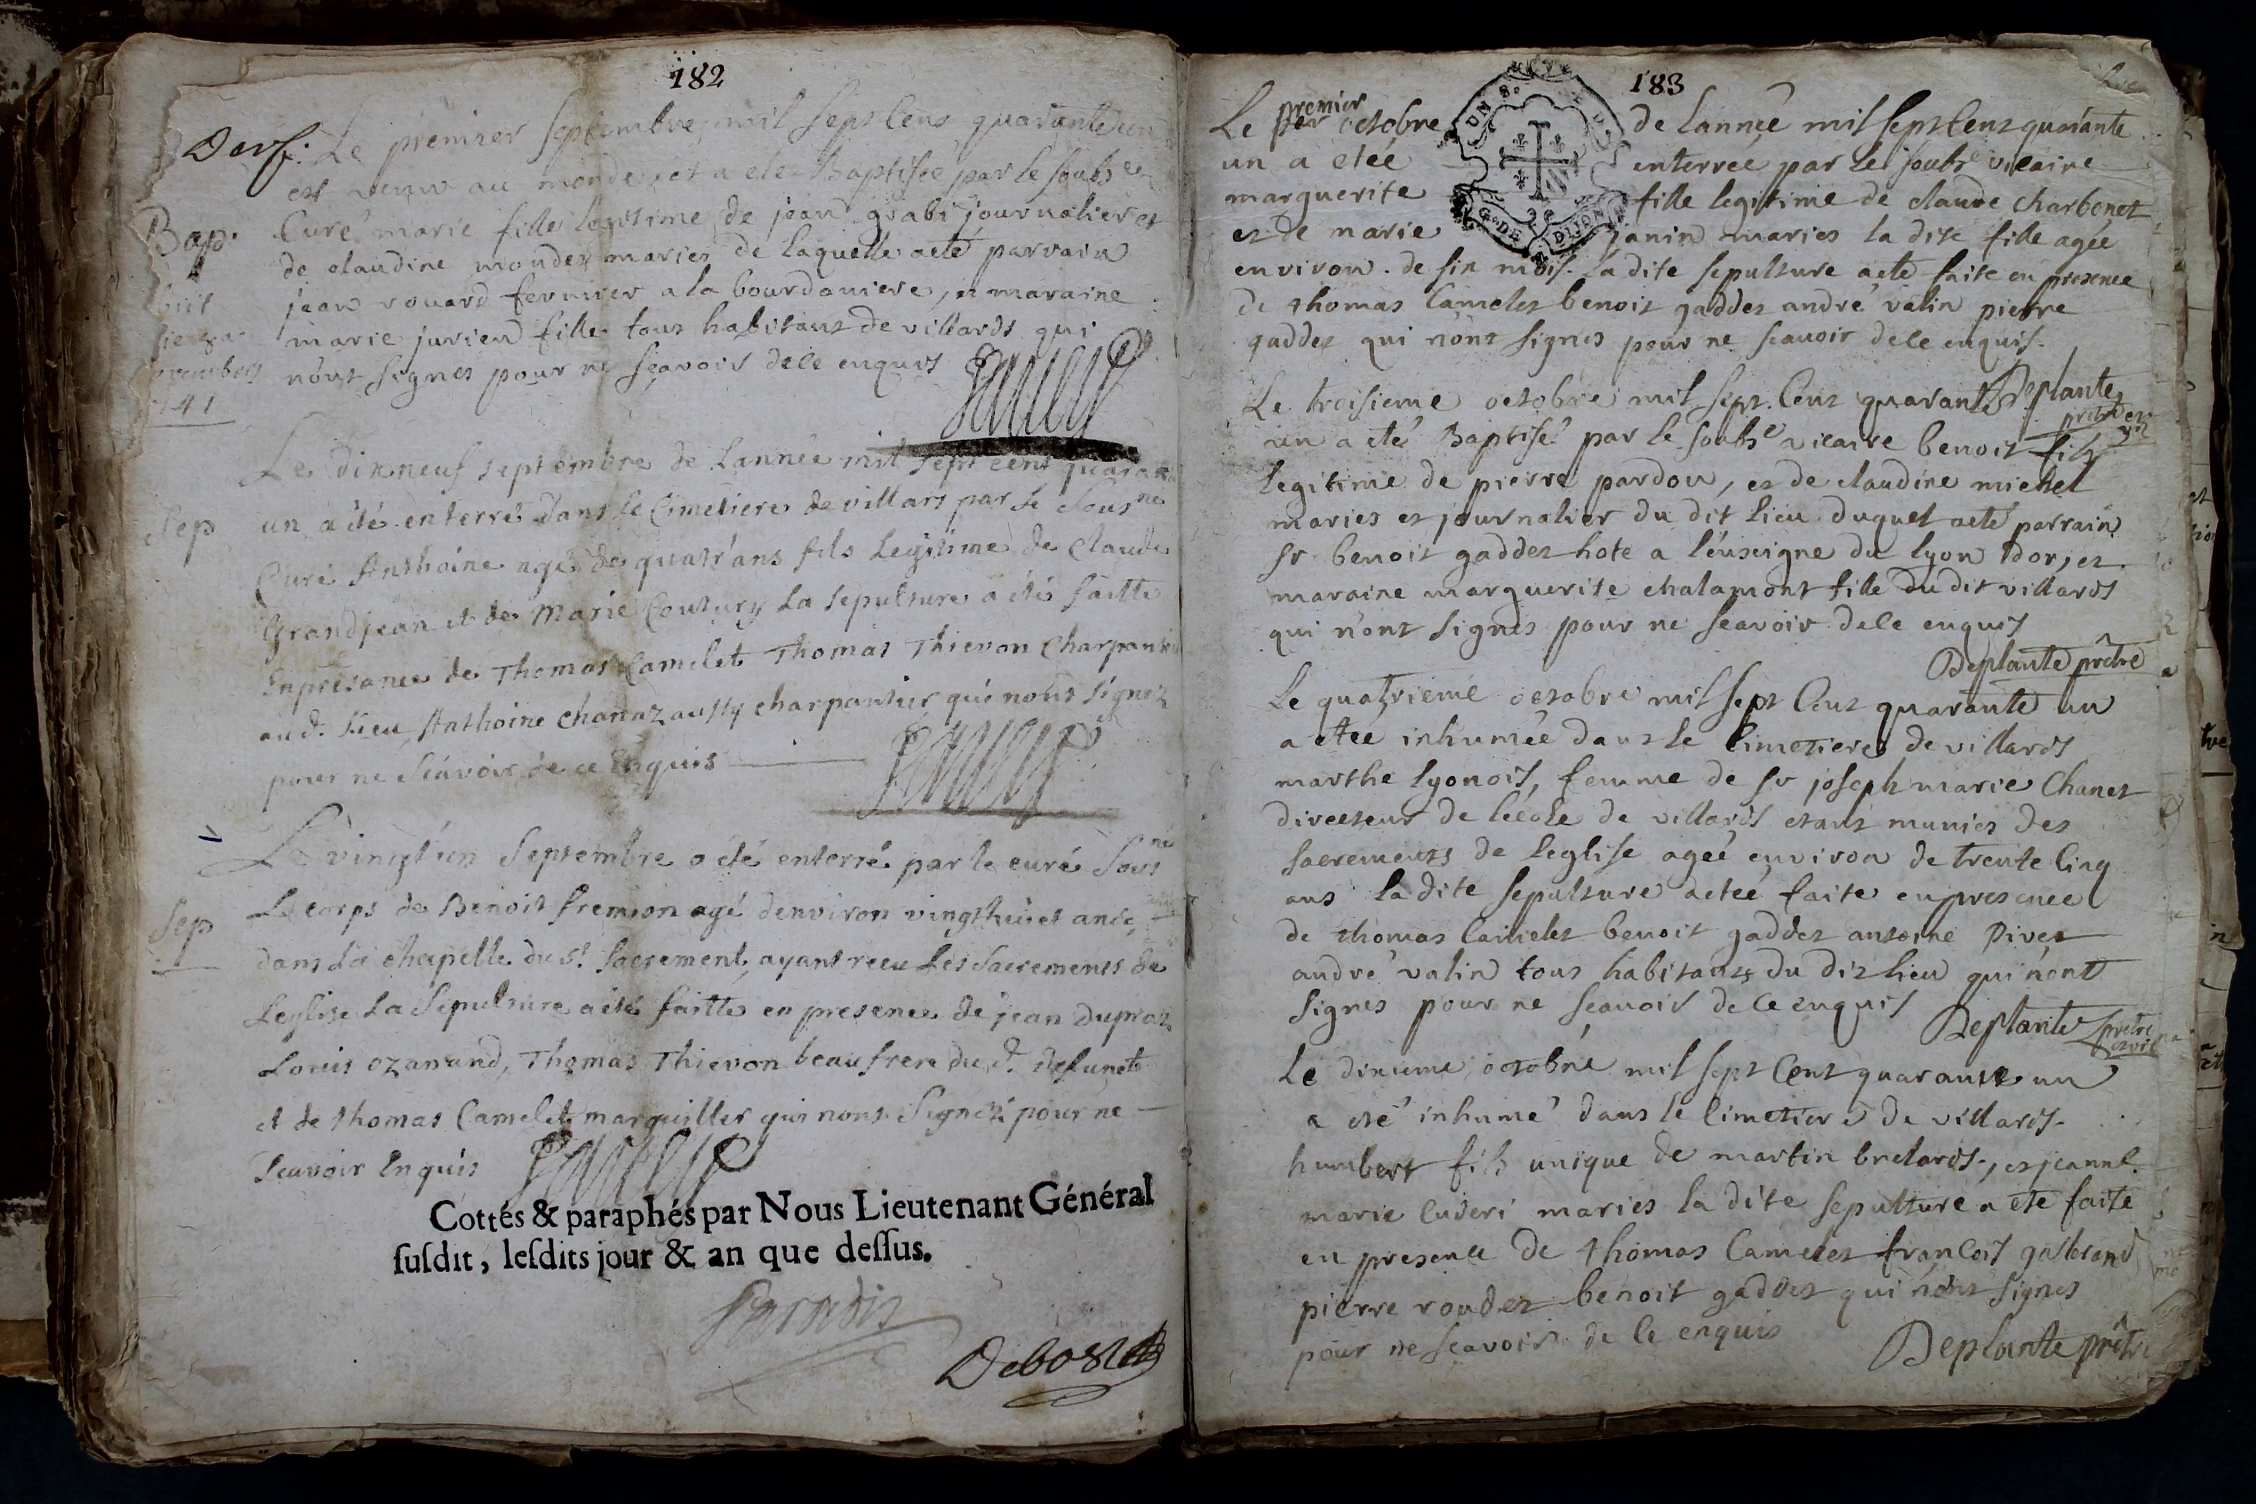 182
Le premier septembre mil sept Cens quarante un
est venue au monde et a eté Baptisée par le soubs
Bap. Curé marie fille legitime de jean grabi journalier et
de claudine moudez maries de laquelle aeté parrain
jean rouard fermier a la bourdonniere, et maraine
marie jurieu fille tous habitans de villards qui
n'ont signes pour ne sçavoir dece enquis
141
Le dixneuf septembre de Lannée mil sept cent quarante
Sep un a été enterré dans le Cimetiere de villars par le Sous né
Curé Anthoine agé de quatr'ans fils Legitime de Claude
Grandjean et de Marie Coutury La sepulture a été faitte
Enpresance de Thomas Camelet Thomas Thievon Charpantier
aud. Lieu, Anthoine Chanaz aussy charpantier qui nont signez
pour ne Scavoir de ce Enquis
Le vingt'un Septembre a été enterré par le curé Sous né
Sep Le corps de Benoit fremion agé denviron vingthuict ans
dans La chapelle du St. Sacrement, ayant receu Les Sacrements de
Leglise La Sepulture aété faitte en presence de jean Dupraz
Louis Ozanand, Thomas Thievon beaufrere du d. defunct
et de thomas Camelet marguiller qui nont Signez pour ne
Scavoir Enquis
Cottés & paraphés par Nous Lieutenant Général
susdit, lesdits jour & an que dessus.
Debost
183
Le premier octobre de lannée mil sept Cent quarante
un a etée enterreé par le soubs vicaire
marguerite fille legitime de claude charbonet
et de marie janin maries la dite fille agée
environ de six mois. la dite sepulture aeté faite en presence
de thomas Camelet benoit gaddez andré valin pierre
gaddez qui n'ont signes pour ne scavoir dece enquis.
Deplante
Le troisieme octobre mil sept Cent quarante
un a eté Baptisé par le soubs vicaire benoit fils
legitime de pierre pardon, et de claudine michel
maries et journalier du dit lieu duquel aeté parrain
sr benoit gaddez hote a l'enseigne du lyon dor, et
maraine marguerite chalamont fille du dit villards
qui n'ont signes pour ne scavoir dece enquis
Deplante prêtre
Le quatrieme octobre mil sept Cent quarante un
a etée inhumée dans le Cimetiere de villards
marthe lyonois, femme de sr joseph marie Chanet
directeur de lecole de villards etant munies des
sacrements de leglise ageé environ de trente Cinq
ans ladite sepulture aetée faite enpresence
de thomas Camelet benoit gaddez antoine Pivet
andré valin tous habitants du dit lieu qui n'ont
signes pour ne scavoir dece enquis
Deplante prêtre
Le dixieme octobre mil sept Cent quarante un
a eté inhumé dans le Cimetiere de villards
humbert fils unique de martin bretards, et jeanne
marie Cuderi maries la dite sepulture a ete faite
en presence de thomas Camelet francois gasbrand
pierre roudez benoit gaddez qui n'ont signes
pour ne scavoir de Ce enquis
Deplante prêtre